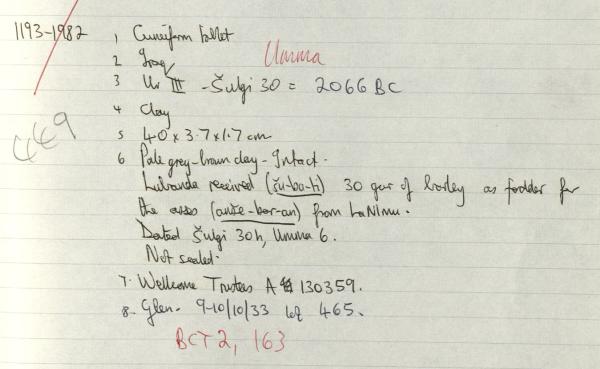 1193-1982 1, Cuneiform tablet
2 Iraq Umma
3 Ur III - Šulgi 30 = 2066 BC
4 Clay
449
5 4.0 x 3.7 x 1.7 cm
6 Pale grey-brown clay - Intact.
received (šu-ba-ti) 30 gur of barley as fodder for
the asses (anše-bar-an) from LaNImu.
Dated Šulgi 30h, Umma 6.
Not sealed.
7. Wellcome Trustees A 130359.
8. Glen. 9-10/10/33 lot 465.
BCT 2, 163